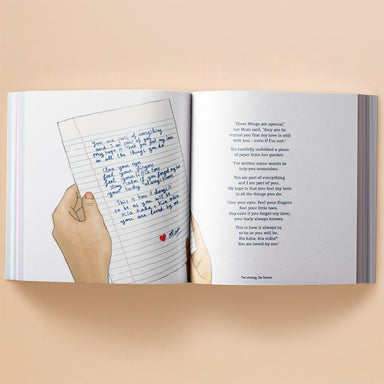 You are part of everything
and I am part of you.
My hope is that you feel my love
in all the things you do
Close your eyes.
feel your fingers.
feel your little toes.
Stay calm if you forget my love
your body always knows
This is how it always is
so be as you will be.
Kia kaha, Kia māia
you are loved by me
'These Wings are special,'
her Mum said, 'they are to
remind you that my love is still
with you – even if I'm not.'
She carefully unfolded a piece
of paper from her pocket.
'I've written some words to
help you remember.
You are part of everything
and I am part of you.
My hope is that you feel my love
in all the things you do.
Close your eyes. Feel your fingers.
Feel your little toes.
Stay calm if you forget my love,
your body always knows.
This is how it always is,
so be as you will be.
Kia kaha, kia māia*.
You are loved by me.'
*be strong, be brave